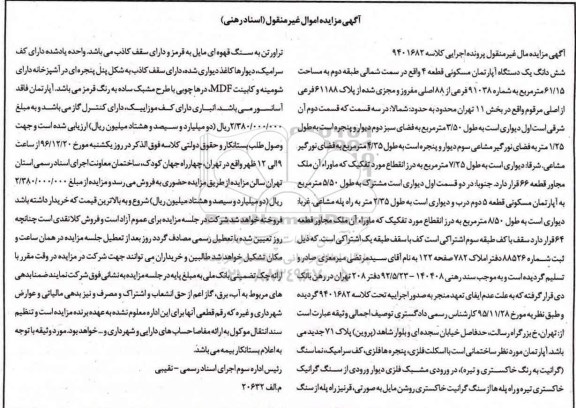 آگهی مزایده اموال غیر منقول (اسناد رهنی)
آگهی مزایده مال غیر منقول پرونده اجرایی کلاسه ۹۴۰۱۶۸۲
شش دانگ یک دستگاه آپارتمان مسکونی قطعه ۴ واقع در سمت شمالی طبقه دوم به مساحت
۶۱/۱۵ مترمربع به شماره ۹۱۰۳۸ فرعی از ۸۸ اصلی مفروز و مجزی شده از پلاک ۶۱۱۸۸ فرعی
از اصلی مرقوم واقع در بخش ۱۱ تهران محدود به حدود: شمالا: در سه قسمت که قسمت دوم آن
شرقی است اول دیواری است به طول ۳/۵۰ مترمربع به فضای سبز دوم دیوار و پنجره است به طول
۱/۲۵ متر به فضای نورگیر مشاعی سوم دیوار و پنجره است به طول ۴/۲۵ مترمربع به فضای نورگیر
مشاعی، شرقا: دیواری است به طول ۷/۲۵ مترمربع به درز انقطاع مورد تفکیک که ماوراء آن ملک
مجاور قطعه ۶۶ قرار دارد. جنوبا: در دو قسمت اول دیواری است مشترک به طول ۵/۵۰ مترمربع
به آپارتمان مسکونی قطعه ۵ دوم درب و دیواری است به طول ۲/۳۵ متر به راه پله مشاعی. غربا:
دیواری است به طول ۸/۵۰ مترمربع به درز انقطاع مورد تفکیک که ماوراء آن ملک مجاور قطعه
۶۴ قرار دارد سقف با کف طبقه سوم اشتراکی است کف با سقف طبقه یک اشتراکی است. که ذیل
ثبت شماره ۸۸۵۲۶ دفتر املاک ۷۸۲ صفحه ۱۲۲ به نام آقای سیدمرتضی میرمعزی صادر و
تسلیم گردیده است و به موجب سند رهنی ۱۴۰۴۰۸ - ۹۲/۵/۲۳ دفتر ۲۰۸ تهران در رهن بانک
دی قرار گرفته که به علت عدم ایفای تعهد منجر به صدور اجراییه تحت کلاسه ۹۴۰۱۶۸۲ گردیده
و طبق نظریه به مورخ ۹۵/۱۱/۲۸ کارشناس رسمی دادگستری توصیف اجمالی وثیقه عبارت است
از: تهران، خ بزرگراه رسالت، حدفاصل خیابان سجده‌ای و بلوار شاهد (پروین) پلاک ۷۱ جدید می
باشد. آپارتمان مورد نظر ساختمانی است با اسکلت فلزی، پنجره ها فلزی، کف سرامیک، نما سنگ
(گرانیت به رنگ خاکستری و تیره)، در ورودی مشبک فلزی دیوار ورودی از سنگ گرانیت
خاکستری تیره و راه پله ها از سنگ گرانیت خاکستری روشن مایل به صورتی، قرنیز راه پله از سنگ
تراورتن به سنگ قهوه ای مایل به قرمز و دارای سقف کاذب می باشد. واحد یادشده دارای کف
سرامیک، دیوارها کاغذ دیواری شده، دارای سقف کاذب به شکل پنل پنجره ای در آشپزخانه دارای
شومینه و کابینت MDF، درها چوبی با طرح مشبک ساده به رنگ قرمز می باشد. آپارتمان فاقد
آسانسور می باشد. انباری دارای کف موزاییک، دارای کنترل گاز می باشد و به مبلغ
۲/۳۸۰/۰۰۰/۰۰۰ ریال (دو میلیارد و سیصد و هشتاد میلیون ریال) ارزیابی شده است و جهت
وصول طلب بستانکار و حقوق دولتی کلاسه فوق الذکر در روز یکشنبه مورخ ۹۶/۱۲/۲۰ از ساعت
۹ الی ۱۲ ظهر واقع در تهران، چهارراه جهان کودک، ساختمان معاونت اجرای اسناد رسمی استان
تهران سالن مزایده از طریق مزایده حضوری به فروش می رسد و مزایده از مبلغ ۲/۳۸۰/۰۰۰/۰۰۰
ریال (دو میلیارد و سیصد و هشتاد میلیون ریال) شروع و به بالاترین قیمت که خریدار داشته باشد
فروخته خواهد شد شرکت در جلسه مزایده برای عموم آزاد است و فروش کلا نقدی است چنانچه
روز تعیین شده با تعطیل رسمی مصادف گردد روز بعد از تعطیل جلسه مزایده در همان ساعت و
مکان تشکیل خواهد شد طالبین و خریداران می توانند جهت شرکت در مزایده در وقت مقرر با
ارائه چک تضمینی بانک ملی به مبلغ پایه در جلسه مزایده به نشانی فوق شرکت نمایند ضمنا بدهی
های مربوط به آب، برق، گاز اعم از حق انشعاب و اشتراک و مصرف و نیز بدهی مالیاتی و عوارض
شهرداری و غیره که رقم قطعی آنها برای این اداره معلوم نشده به عهده برنده مزایده است و تنظیم
سند انتقال موکول به ارائه مفاصا حساب های دارایی و شهرداری و... خواهد بود. مورد وثیقه با توجه
به اعلام بستانکار بیمه می باشد.
رئیس اداره سوم اجرای اسناد رسمی - نقیبی
م الف ۲۰۶۳۲